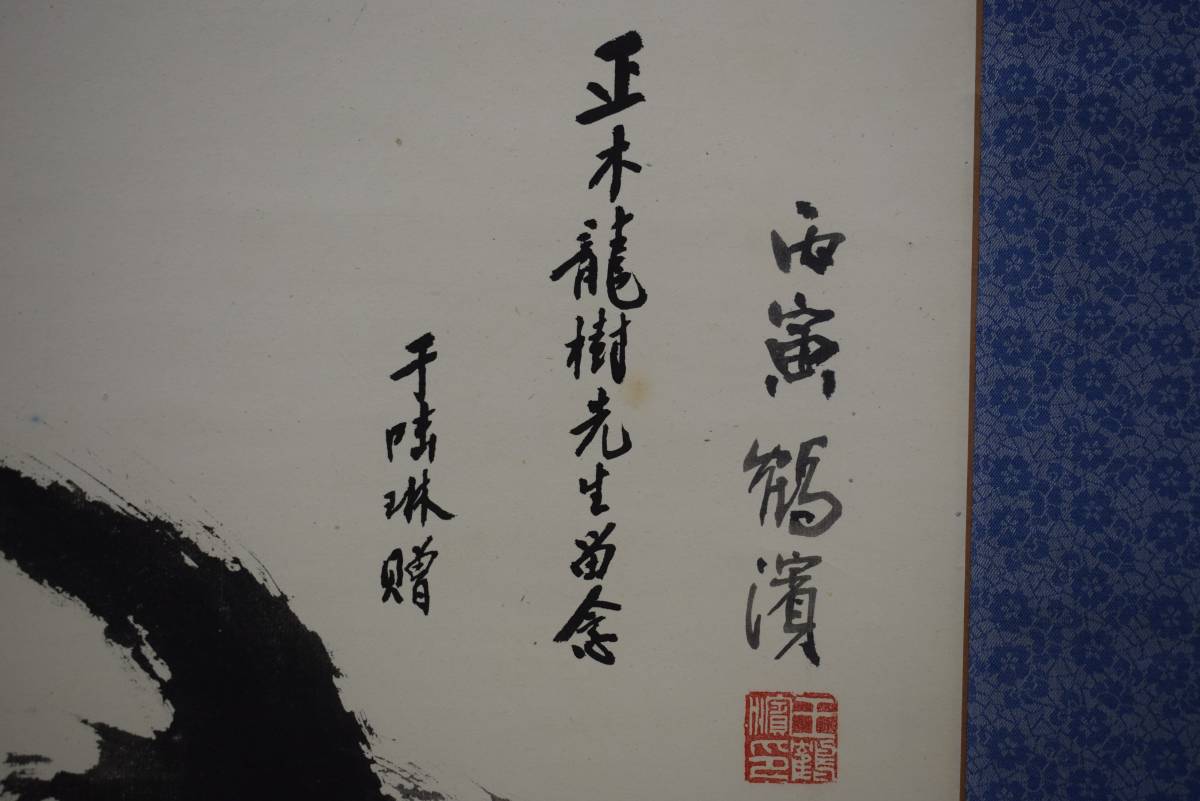 丙寅鶴濱
王鶴濱印
正木龍樹先生留念
于陆琳贈